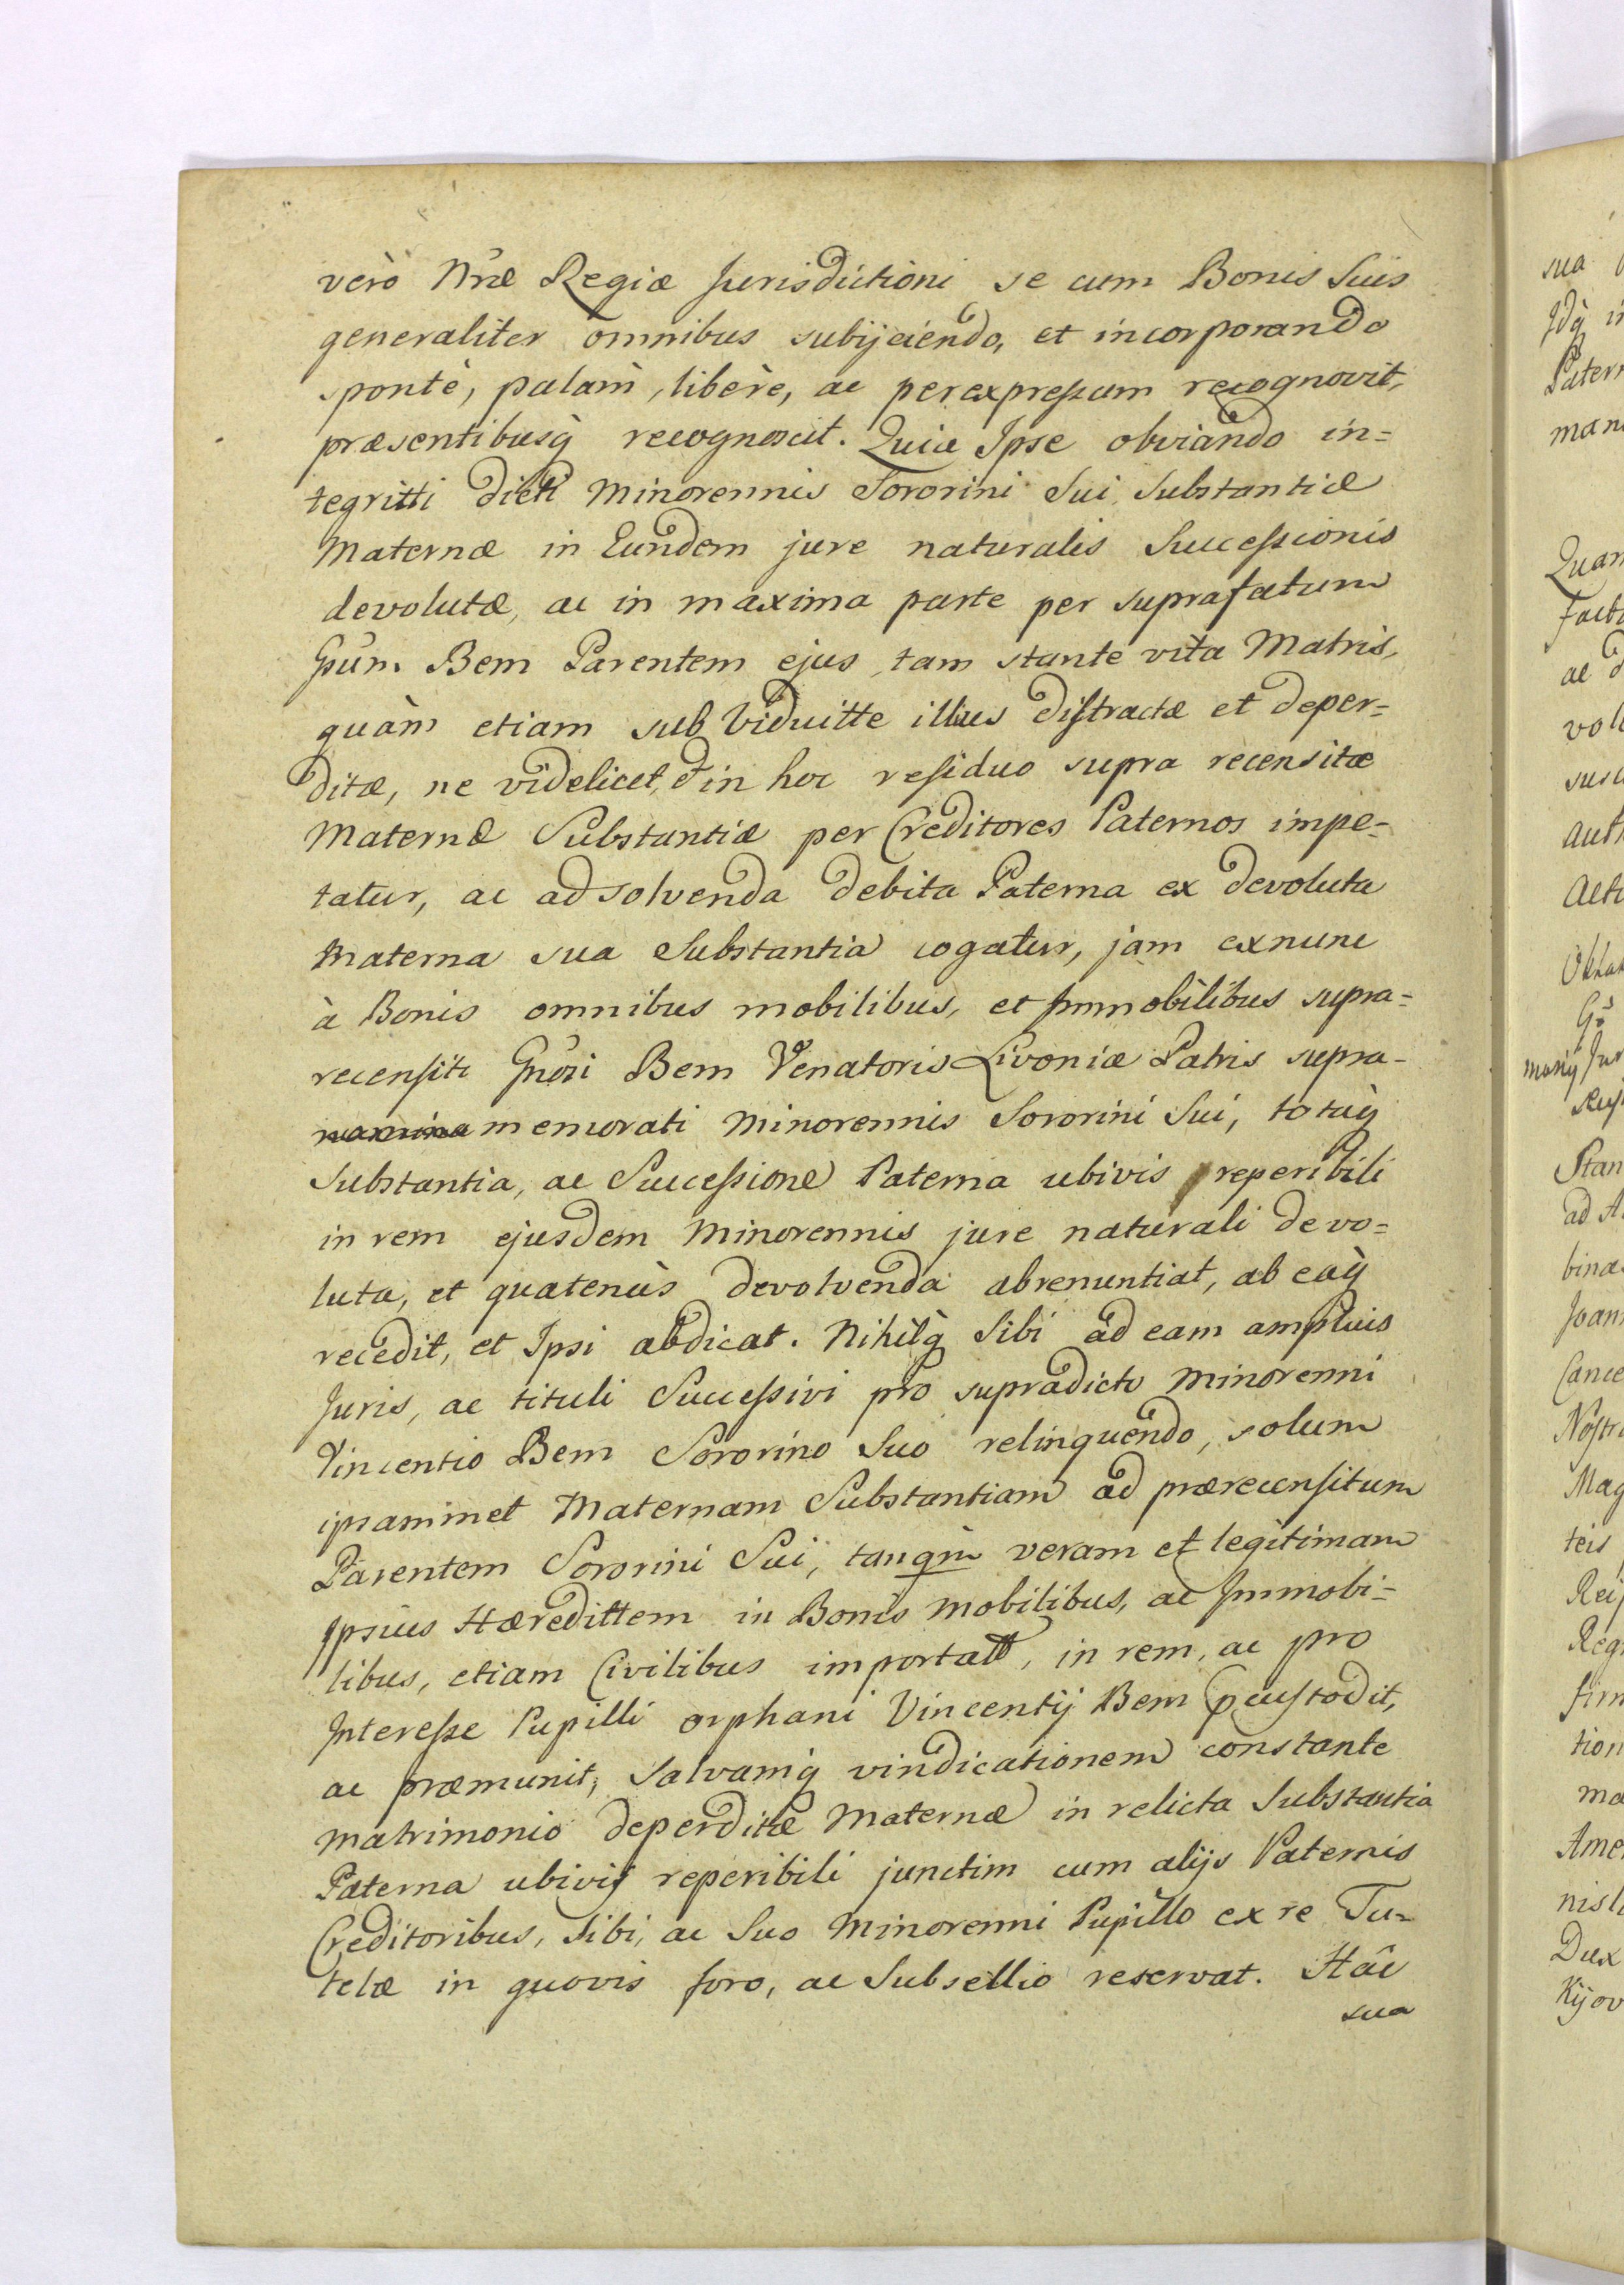 verò Nr̃æ Regiæ Jurisdictioni se cum Bonis Suis
generaliter omnibus subijciendo, et incorporando
spontè, palàm, liberè, ac perexpressum recognovit,
præsentibusq̀ recognoscit. Quia Ipse obviando in=
tegritti dicti Minorennis Sororini Sui Substantiæ
Maternæ in Eundem jure naturalis Successionis
devolutæ, ac in maxima parte per suprafatum
Gsũm Bem Parentem ejus, tam stante vita Matris,
quàm etiam sub Viduitte illius distractæ et deper=
ditæ, ne videlicet, & in hoc residuo supra recensitæ
Maternæ Substantiæ per Creditores Paternos impe-
tatur, ac ad solvenda debita Paterna ex devoluta
Materna sua Substantia cogatur, jam exnunc
à Bonis omnibus mobilibus, et Immobilibus supra=
recensiti Gñosi Bem Venatoris Livoniæ Patris supra-
memorati Minorennis Sororini Sui, totaq̀
Substantia, ac Successione Paterna ubivis reperibili
in rem ejusdem Minorennis jure naturali devo=
luta, et quatenùs devolvenda abrenuntiat, ab eaq̀
recedit, et Ipsi abdicat. Nihilq̀ Sibi ad eam ampliùs
Juris, ac tituli Successivi pro supradicto Minorenni
Vincentio Bem Sororino Suo relinquendo, solum
ipsammet Maternam Substantiam ad prærecensitum
Parentem Sororini Sui, tanqm̀ veram et legitimam
Ipsius Hæredittem in Bonis mobilibus, ac Immobi=
libus, etiam Civilibus importatt, in rem, ac pro
Interesse Pupilli orphani Vincentij Bem p̱custodit,
ac præmunit, salvamq̀ vindicationem constante
matrimonio deperditæ Maternæ in relicta Substantia
Paterna ubivis reperibili junctim cum alijs Paternis
Creditoribus, Sibi, ac Suo Minorenni Pupillo ex re Tu=
telæ in quovis foro, ac Subsellio reservat. Hâc
sua